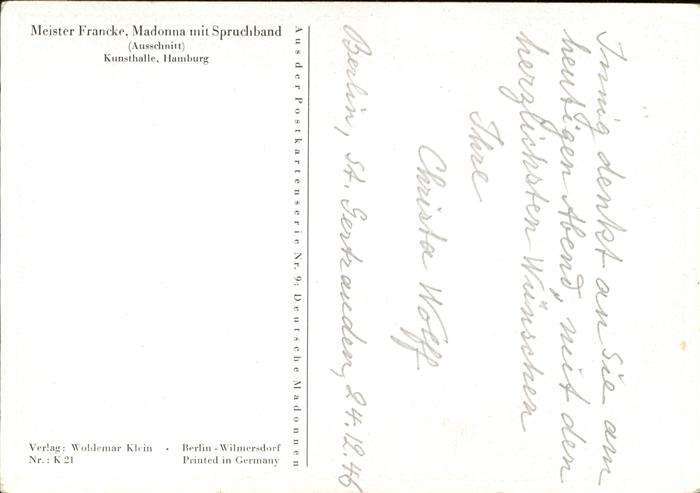 Meister Francke, Madonna mit Spruchband
(Ausschnitt)
Kunsthalle, Hamburg
Aus der Postkartenserie Nr. 9: Deutsche Madonnen
Verlag: Woldemar Klein · Berlin-Wilmersdorf
Nr.: K 21 Printed in Germany
Innig denkt an Sie am
heutigen Abend, mit den
herzlichsten Wünschen
Ihre
Christa Wolff
Berlin, St. Gertrauden, 24.12.46